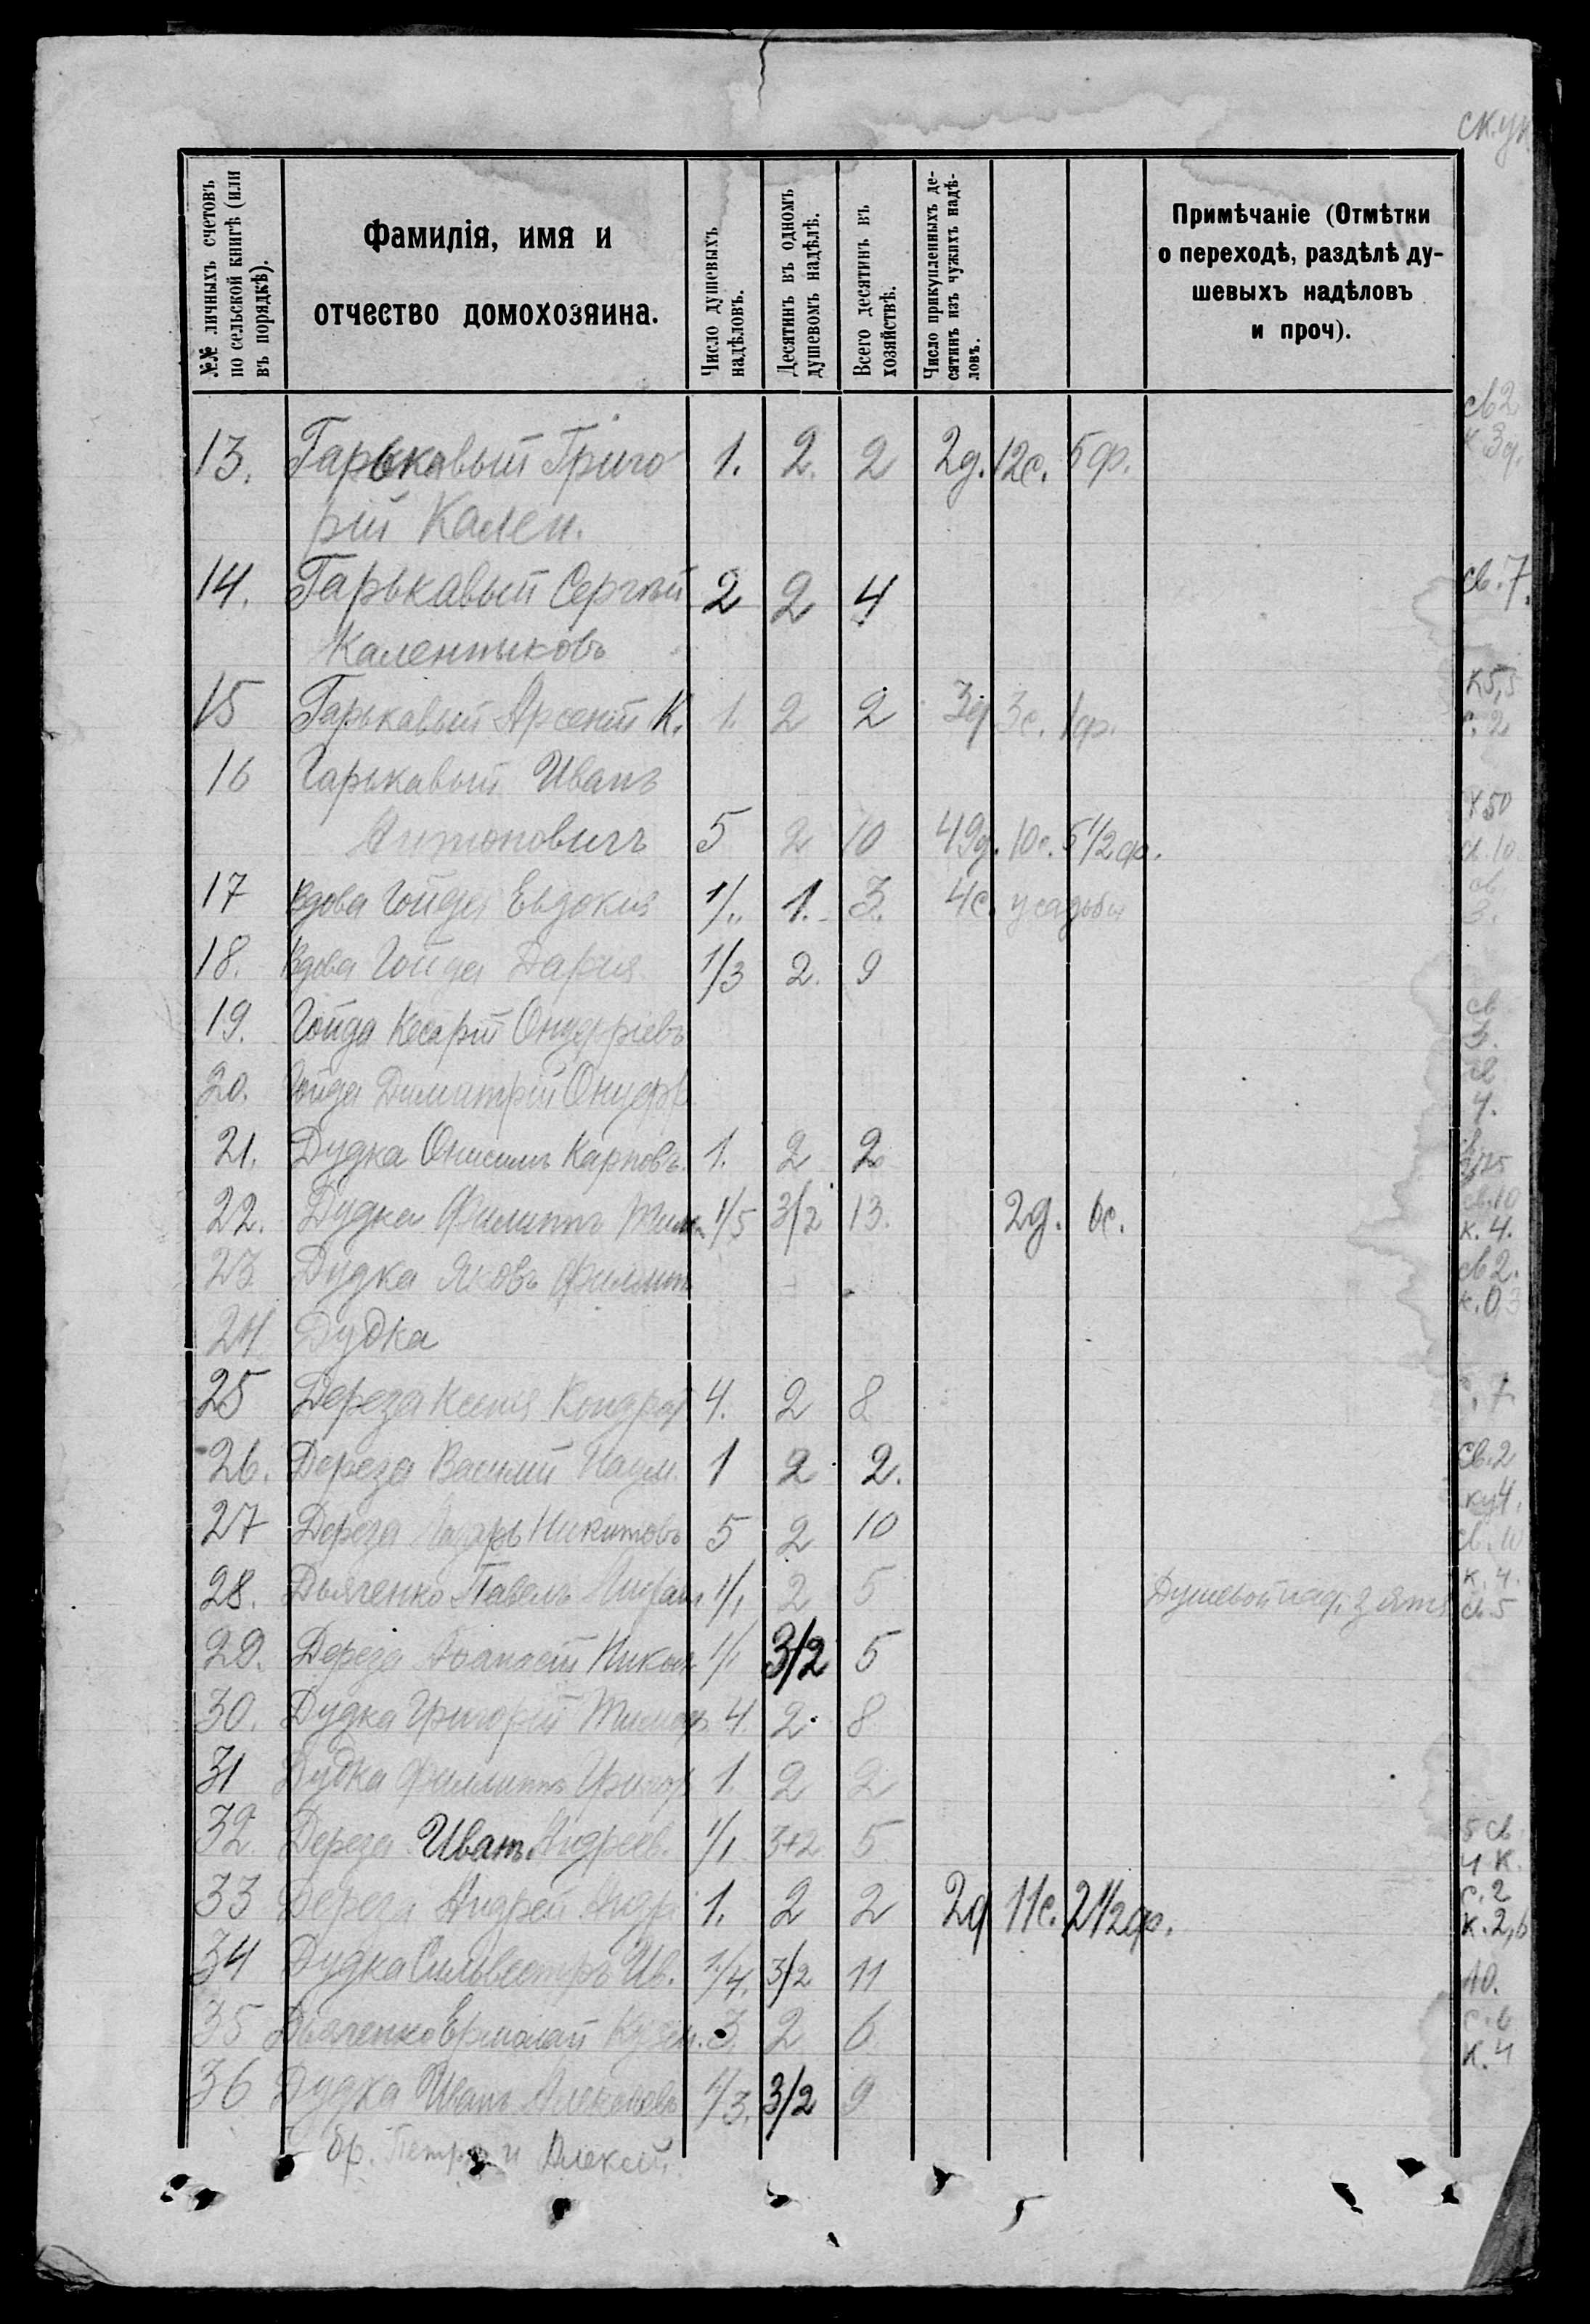 ск.ук
№№ личныхъ счетовъ
по сельской книгѣ (или
въ порядкѣ).
Фамилія, имя и
отчество домохозяина.
Число душевыхъ
надѣловъ.
Десятинъ въ одномъ
душевомъ надѣлѣ.
Всего десятинъ въ
хозяйствѣ.
Число прикупленныхъ де-
сятинъ изъ чужихъ надѣ-
ловъ.
Примѣчаніе (Отмѣтки
о переходѣ, раздѣлѣ ду-
шевыхъ надѣловъ
и проч).
13. Гарькавый Григо 1. 2. 2 2д. 12с. 5ф. св2
рій Кален. к 3д.
14. Гарькавый Сергѣй 2 2 4 св. 7.
Калениковъ
15 Гарькавый Арсеній К. 1. 2 2 3д 3с. 1ф. с. 2
16 Гарькавый Иванъ
Антоновичъ 5 2 10 49д. 10с. 5 1/2ф. св. 10
17 Вдова Гойда Евдокія 1. 3. 4с. усадьбы св 3.
18. Вдова Гойда Дарія 1/3 2. 9
19. Гойда Кесарій Онуфріевъ св 3.
20. Гойда Димитрій Онуфр. св 4.
21. Дудка Онисимъ Карповъ. 1. 2 2
22. Дудка Филиппъ Тим. 1/5 3/2 13. 2д. 6с. св. 10
к. 4.
23. Дудка Яковъ Филипп св 2.
24 Дудка к. 0,3
25 Дереза Ксенія Кондрат 4. 2 8 7
26. Дереза Василий Наум. 1 2 2. св. 2
27 Дереза Лазарь Никитовъ 5 2 10 св. 10
28. Дьяченко Павелъ 1/1 2 5 Душевой над. зятя к. 4. св 5
29. Дереза Афанасій Никол. 1/1 3/2 5
30. Дудка Григорій Тимоф. 4. 2. 8
31 Дудка Филиппъ Григор 1. 2 2
32. Дереза Иванъ Андреев. 1/1 3+2 5 5 св
4 к.
33 Дереза Андрей Андр 1. 2 2 2д 11с. 2 1/2ф. с. 2
к. 2,6
34 Дудка Сильвестръ Ив. 1/4. 3/2 11 10.
35 Дьяченко Ермолай Кузьм. 3. 2 6. с. 6
к. 4
36 Дудка Иванъ Алексѣевъ 1/3. 3/2 9
бр. Петръ и Алексѣй.